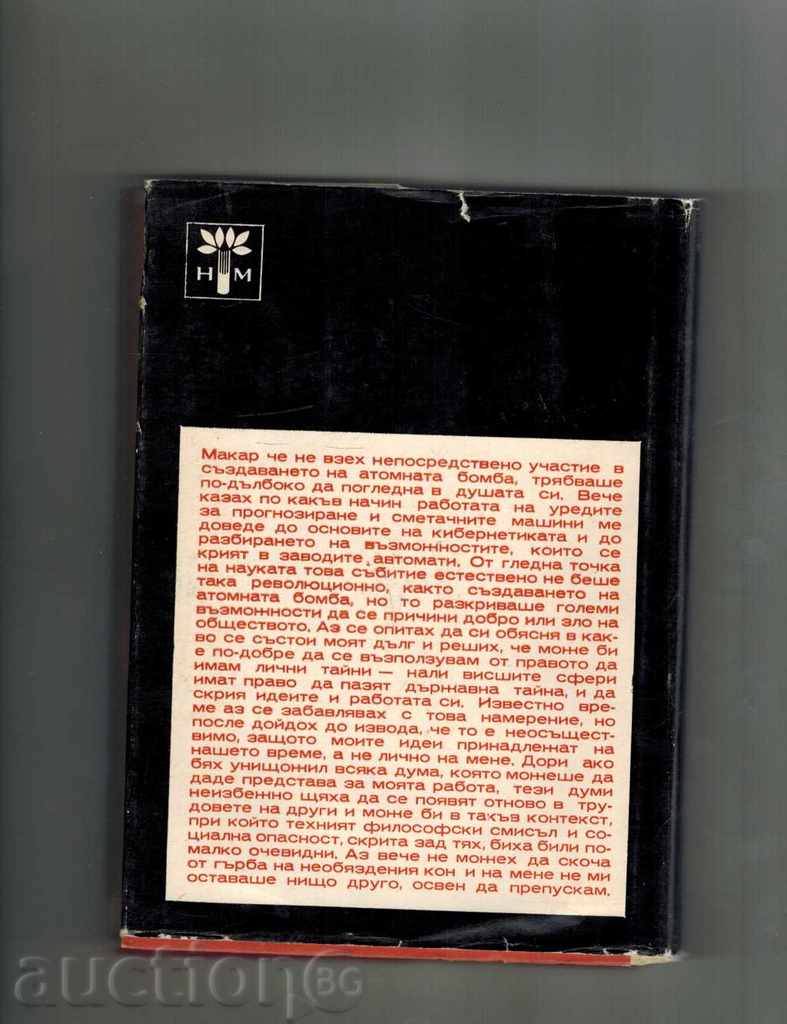 Н М
Макар че не взех непосредствено участие в
създаването на атомната бомба, трябваше
по-дълбоко да погледна в душата си. Вече
казах по какъв начин работата на уредите
за прогнозиране и сметачните машини ме
доведе до основите на кибернетиката и до
разбирането на възможностите, които се
крият в заводите автомати. От гледна точка
на науката това събитие естествено не беше
така революционно, както създаването на
атомната бомба, но то разкриваше големи
възможности да се причини добро или зло на
обществото. Аз се опитах да си обясня в как-
во се състои моят дълг и реших, че може би
е по-добре да се възползувам от правото да
имам лични тайни — нали висшите сфери
имат право да пазят държавна тайна, и да
скрия идеите и работата си. Известно вре-
ме аз се забавлявах с това намерение, но
после дойдох до извода, че то е неосъщест-
вимо, защото моите идеи принадлежат на
нашето време, а не лично на мене. Дори ако
бях унищожил всяка дума, която можеше да
даде представа за моята работа, тези думи
неизбежно щяха да се появят отново в тру-
довете на други и може би в такъв контекст,
при който техният философски смисъл и со-
циална опасност, скрита зад тях, биха били по-
малко очевидни. Аз вече не можех да скоча
от гърба на необяздения кон и на мене не ми
оставаше нищо друго, освен да препускам.
auctionBG